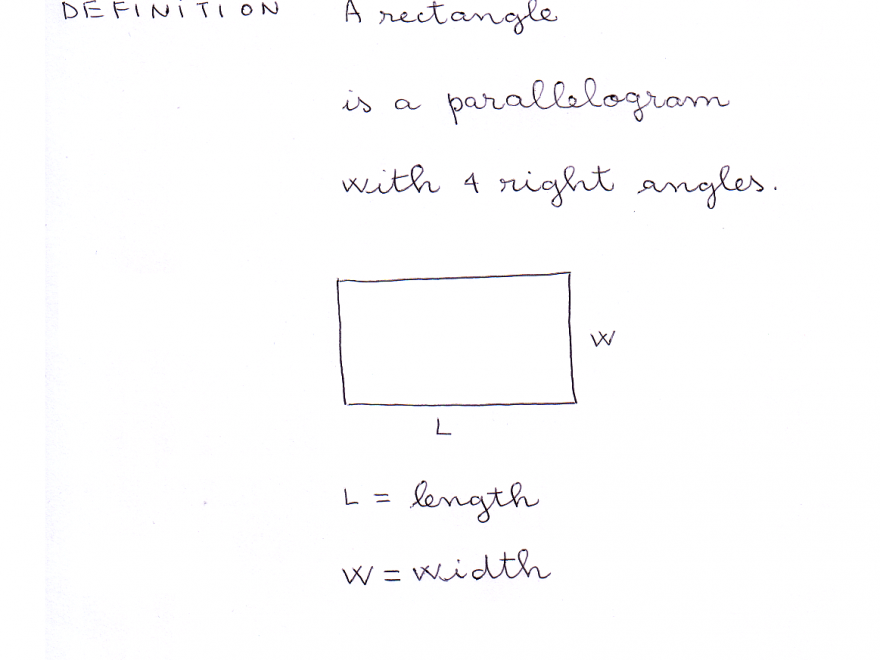 DEFINITION A rectangle
is a parallelogram
with 4 right angles.
W
L
L = length
W = width